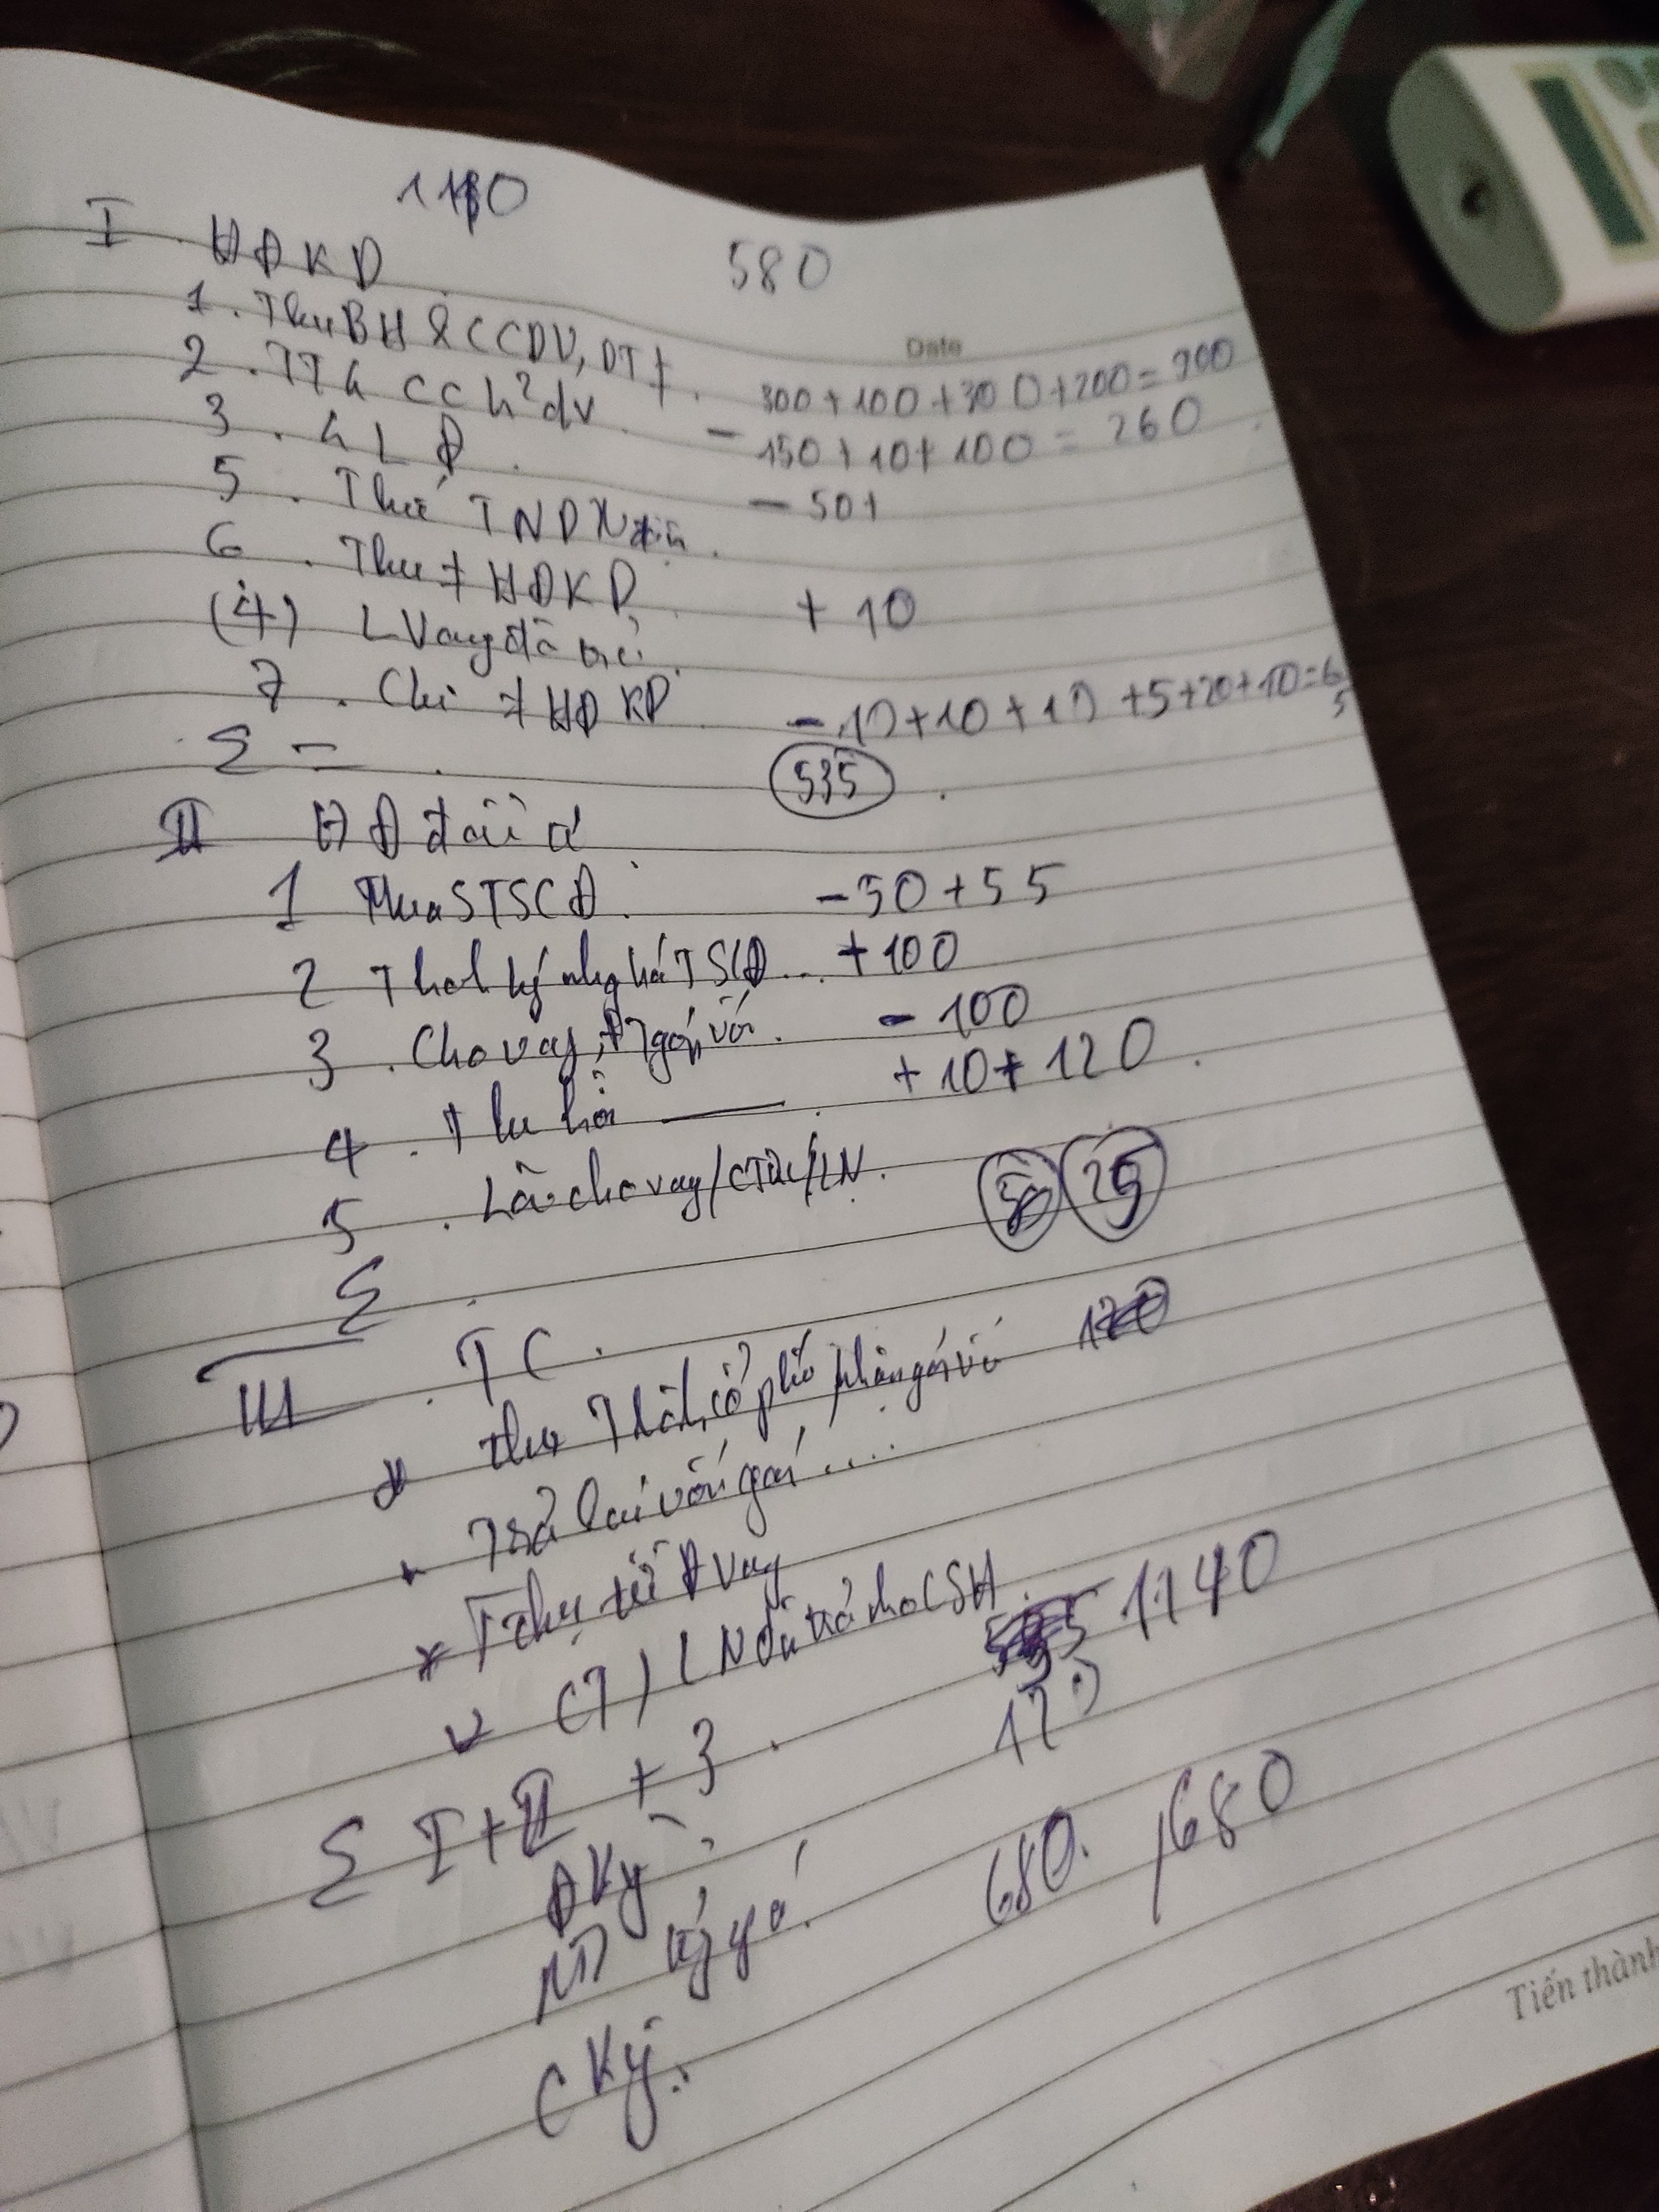 1180
580
I. HĐKD
Date
1. Thu BH & CCDV, DT ≠. 300 + 100 + 300 + 200 = 900
2. TT cc h² dv. - 150 + 10 + 100 = 260
3. LĐ. - 50+
5. Thuế TNDN
6. Thu ≠ HĐKD + 10
(4) L Vay đã trả.
7. Chi ≠ HĐ KD - 10 + 10 + 10 + 5 + 20 + 10 = 65
Σ = . 535
II HĐ đầu tư
1 Mua STSCĐ. - 50 + 55
2 Thanh lý nhg bá TSCĐ... + 100
3. Cho vay, góp vố. - 100
4. Thu hồi —— + 10 + 120
5. Lãi cho vay/CTức/LN.
Σ. 25
III. TC.
* thu cổ phiếu nhận góp vố
- Trả lại vốn góp ....
* Thu từ đi vay
v (T) LN đã trả cho CSH
Σ I + II + 3. 1140
Đ Kỳ
kỳ 680. 680
C Kỳ.
Tiến thành